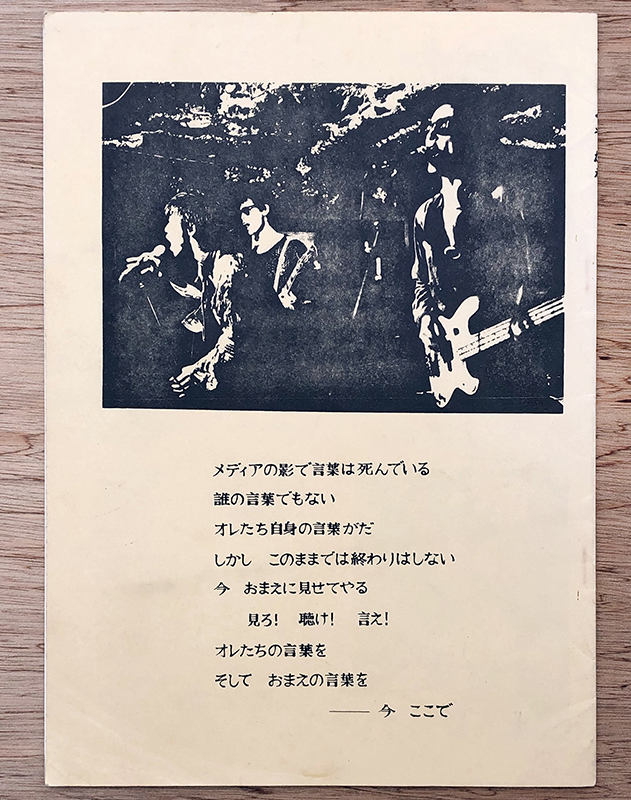 メディアの影で言葉は死んでいる
誰の言葉でもない
オレたち自身の言葉がだ
しかし　このままでは終わりはしない
今　おまえに見せてやる
見ろ！　聴け！　言え！
オレたちの言葉を
そして　おまえの言葉を
―― 今　ここで